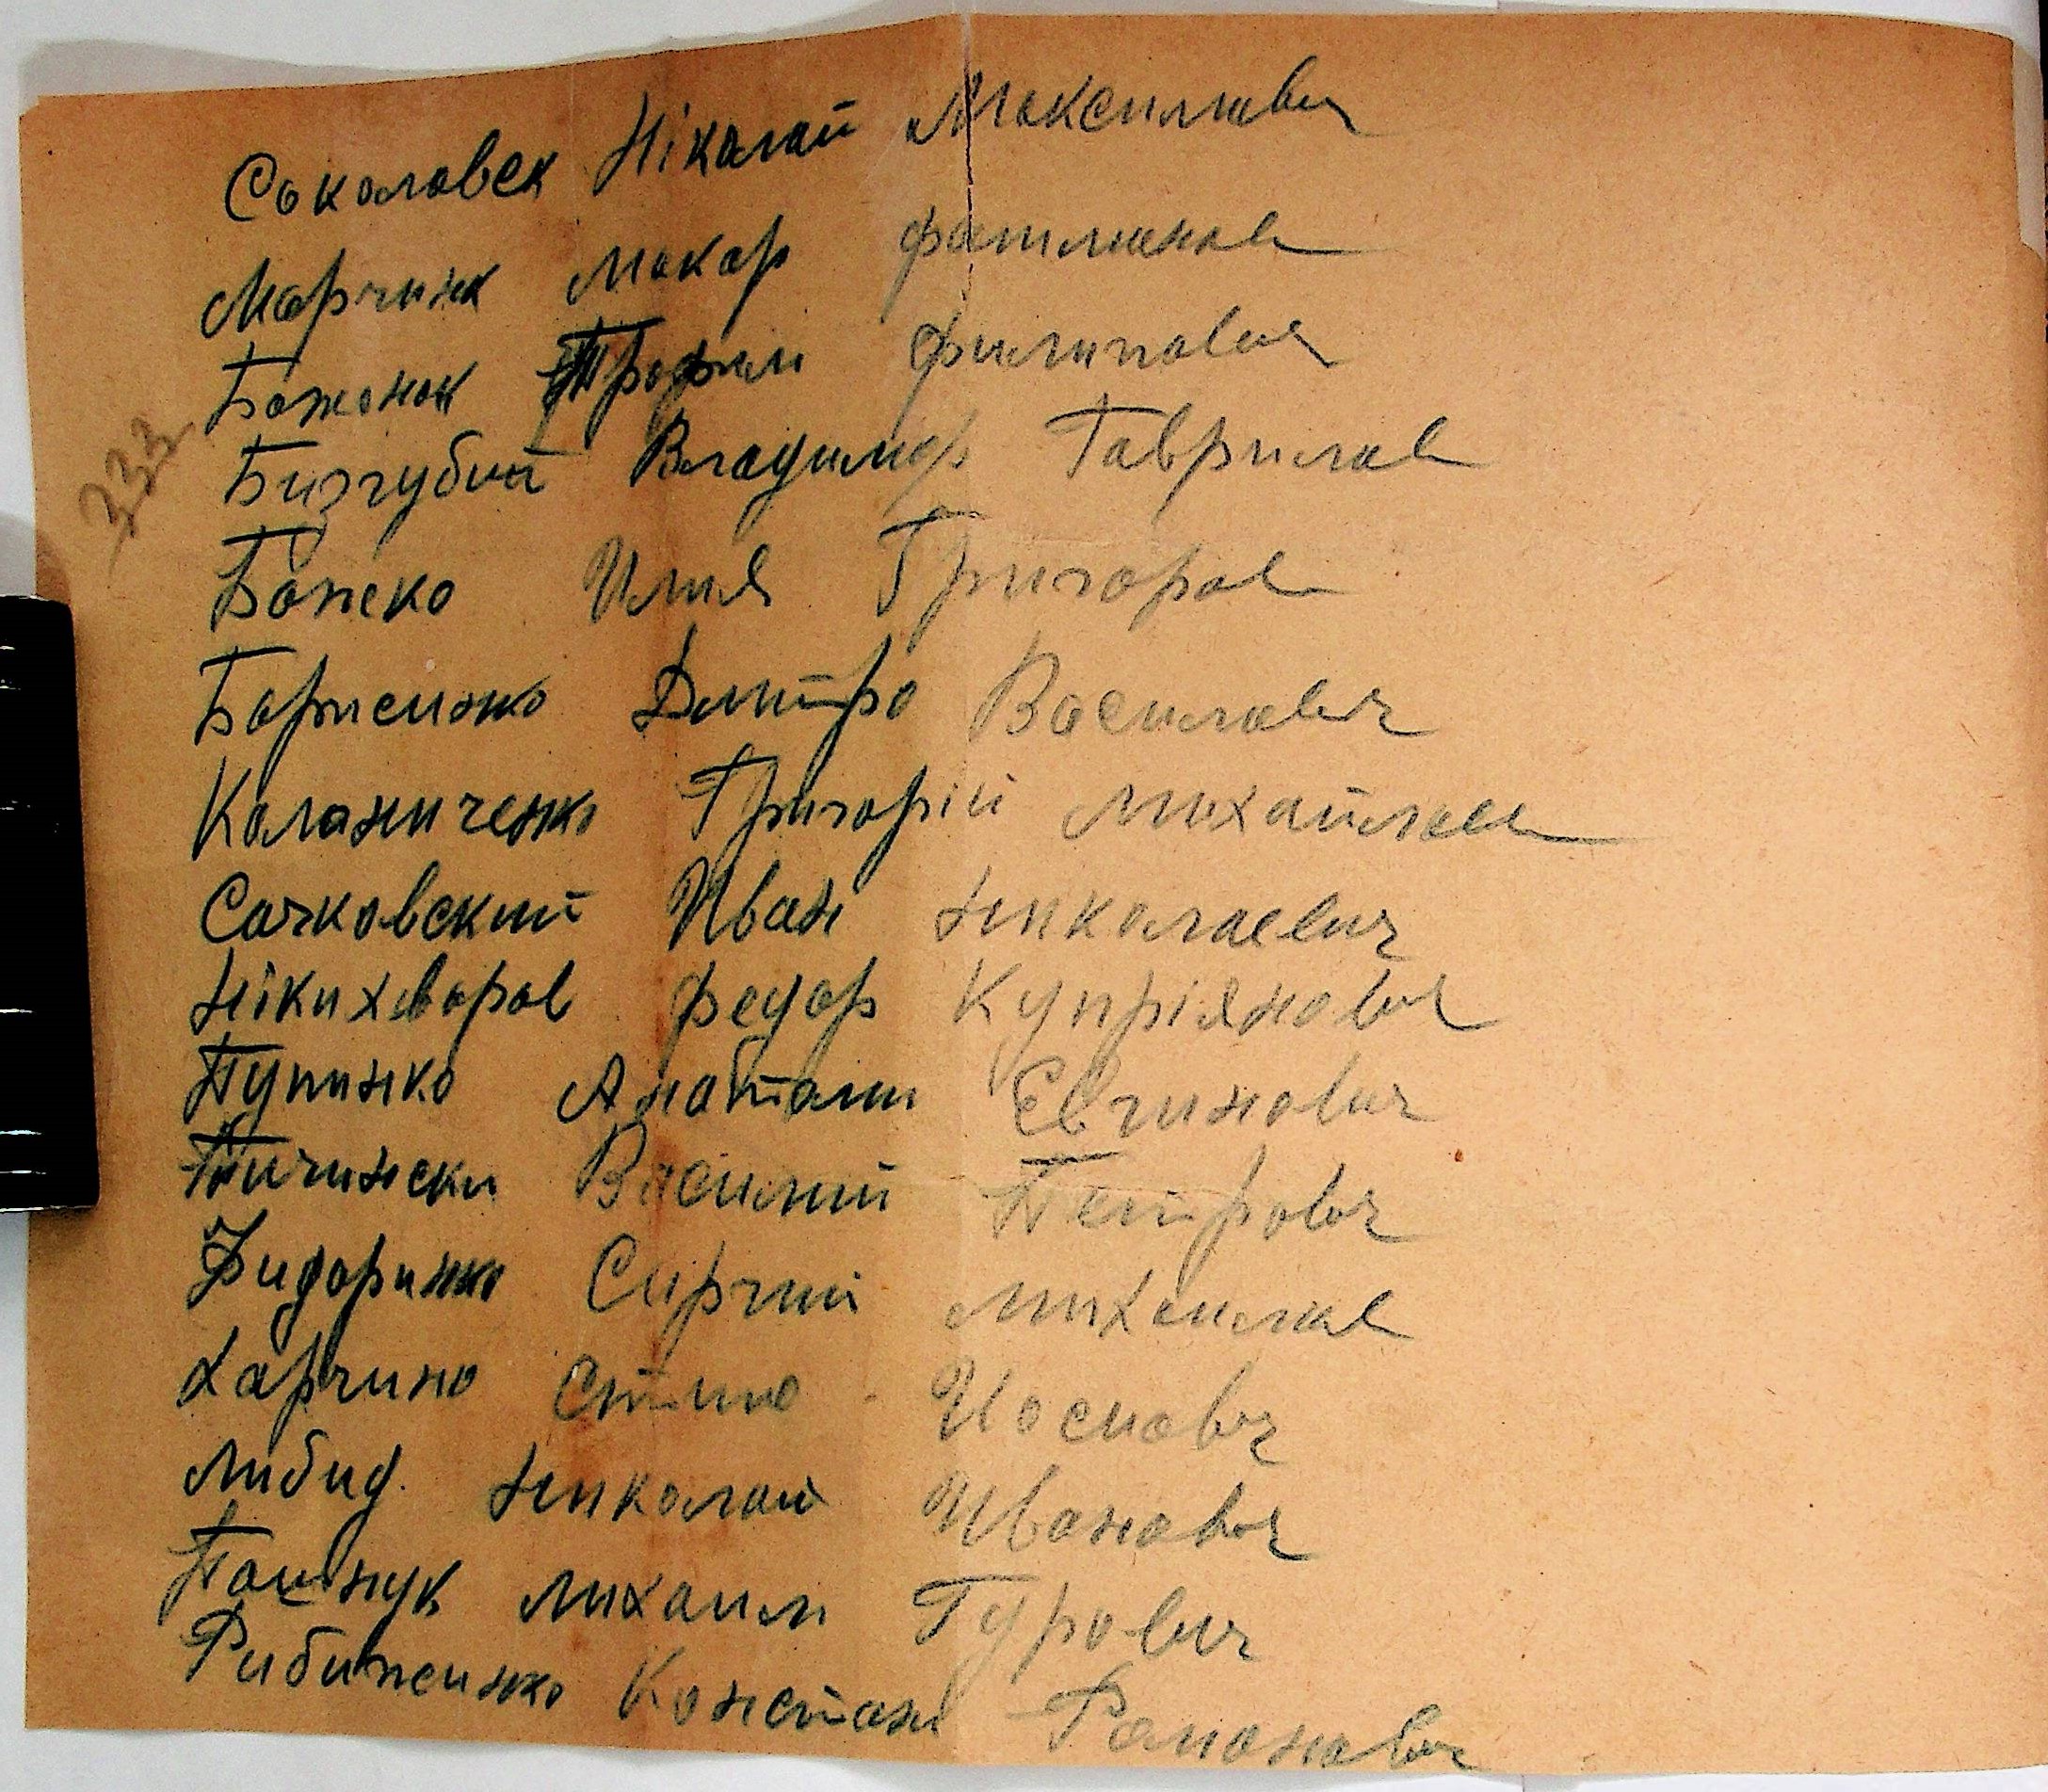 Соколовск Ніколай Максимович
Марчинк Макар
Боженок Трофим Филипович
Бизгубий Владимир Гаврилов
Божеко Илия Григоров
Борисинко Дмитро Василович
Каланиченко Григорій Михайлов
Сачковский Иван Николаевич
333
Нікихворов Федор Купріянович
Пупинко Анатоли Евгинович
Василий Петрович
Фидоринко Сиргий Михаилов
Харчино Иосипович
Либид. Николай Иванович
Михаил Гурович
Рибиженко Констан Раманович